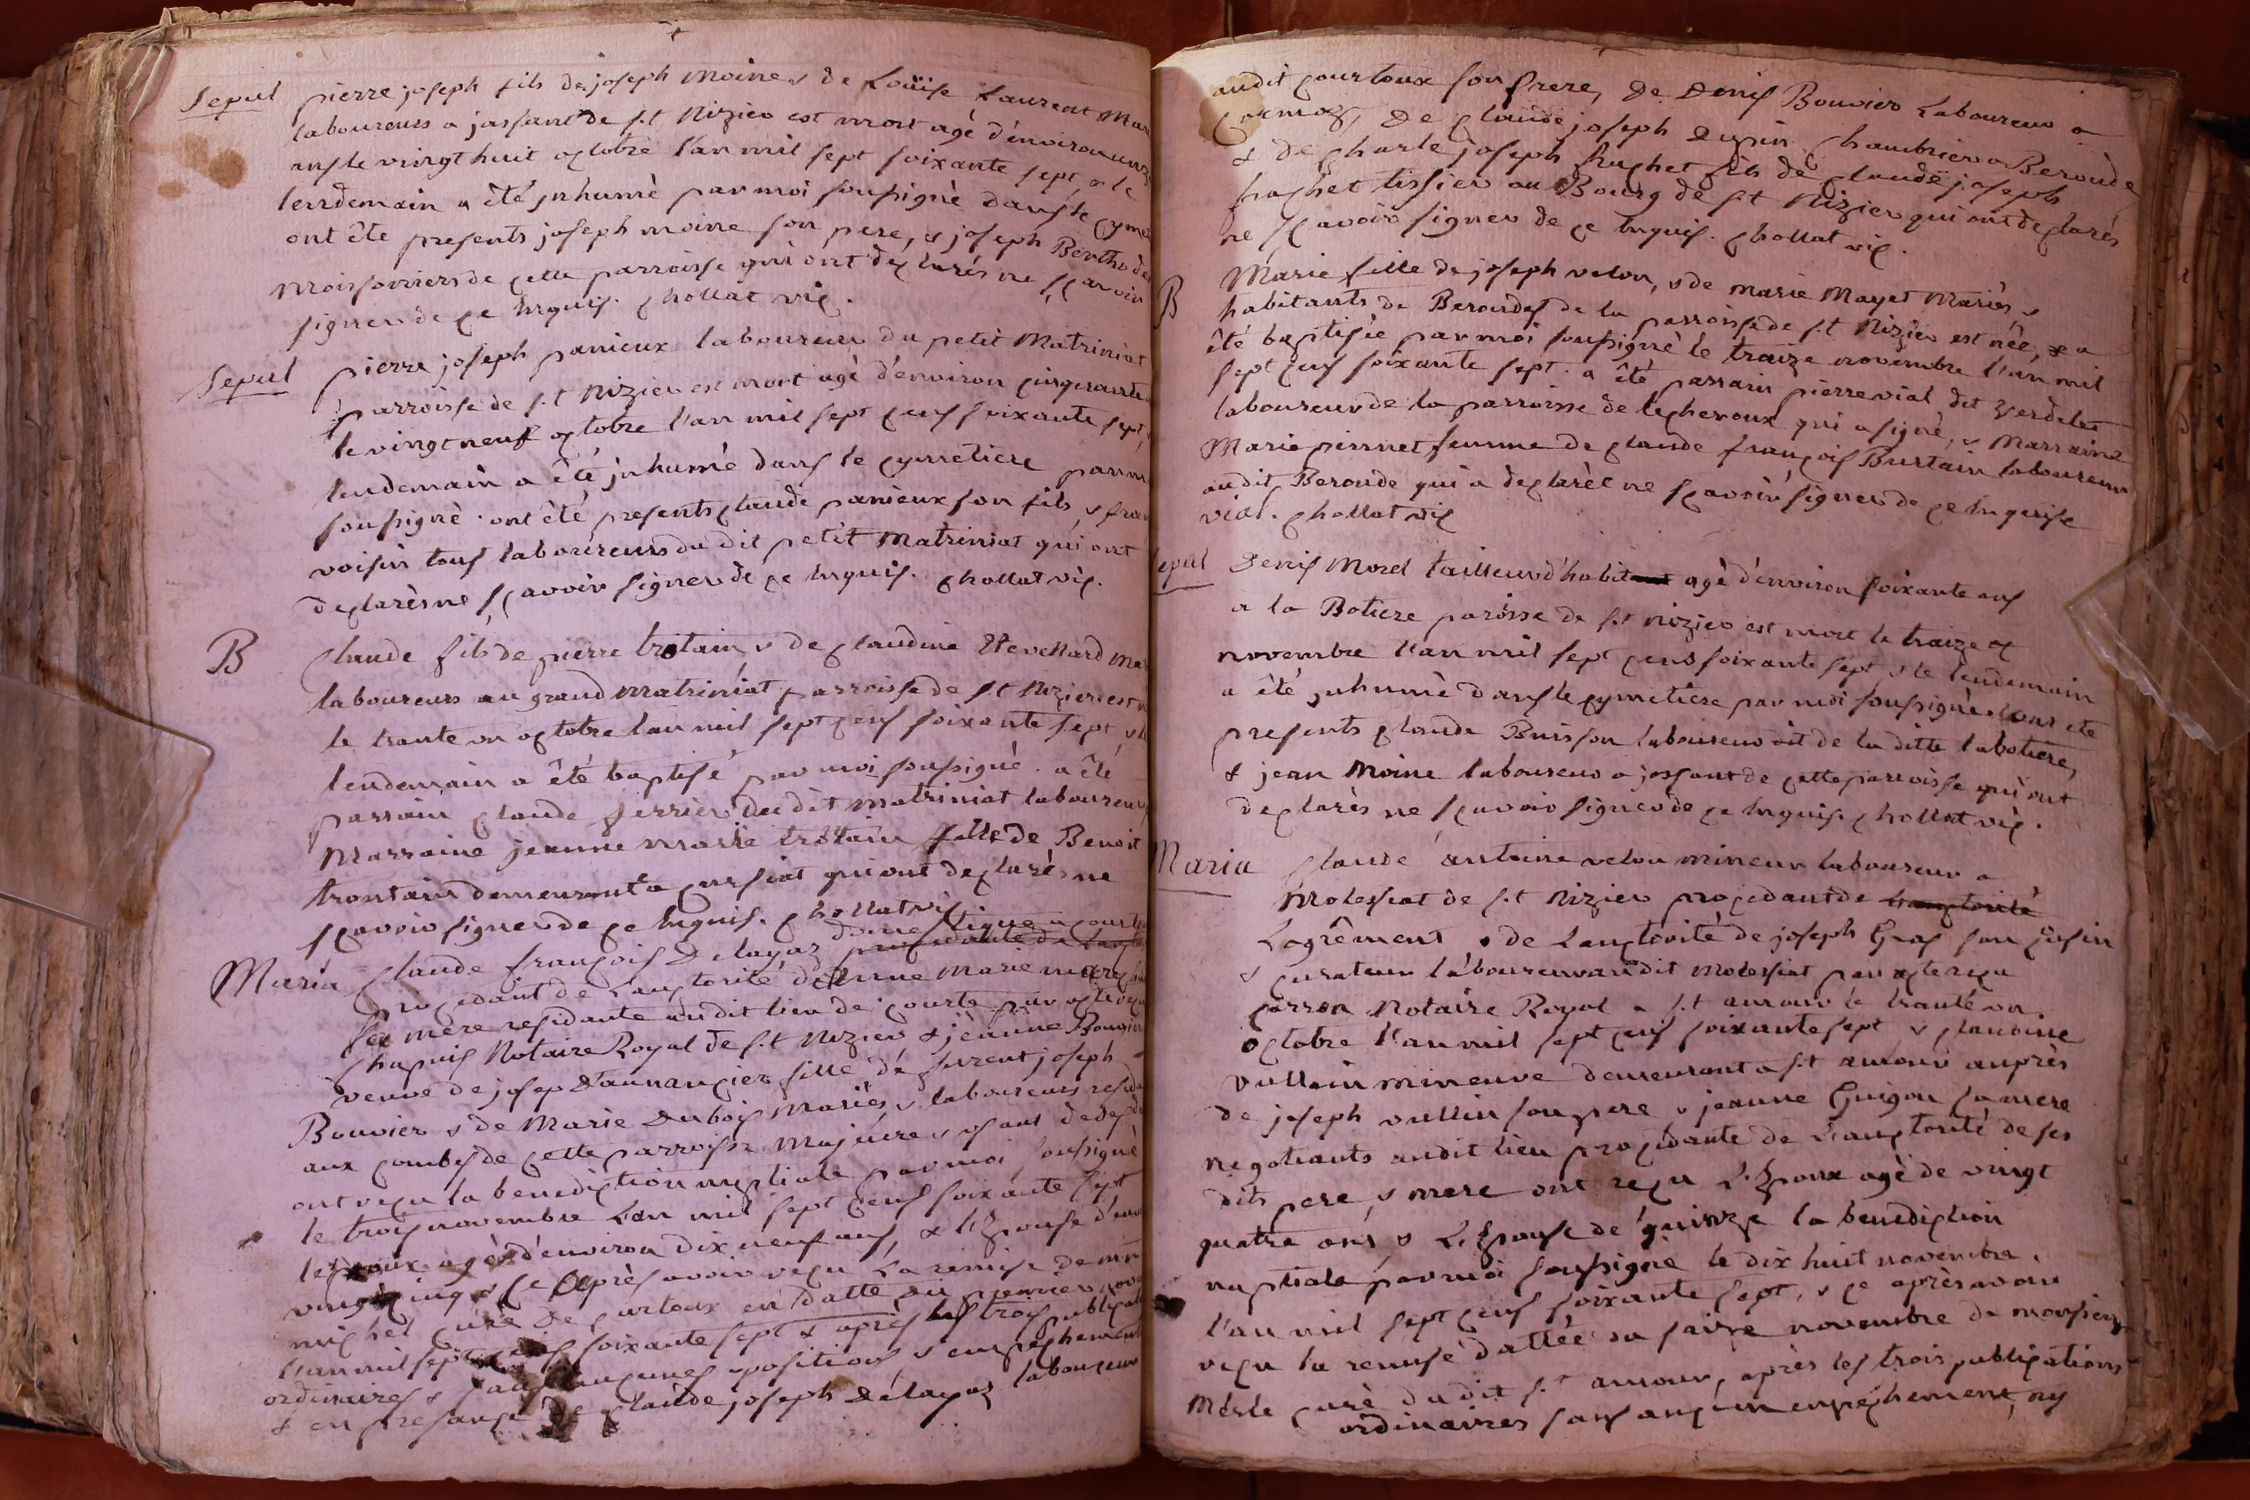 Sepul pierre joseph fils de joseph Moine & de Louïse Laurent Mar
laboureurs a jassant de s.t Nizier est mort agé d'environ
ans le vingt huit octobre l'an mil sept soixante sept, & le
lendemain a êté jnhumé par moi soussigné dans le cyme
ont été presents joseph moine son pere, & joseph Bertho
moissonniers de cette parroisse qui ont declarés ne sçavoir
signer de ce enquis. chollat vic.
Sepul pierre joseph panieux laboureur du petit Matriniat
parroisse de s.t Nizier est mort agé d'environ cinquante
le vingt neuf octobre l'an mil sept cens soixante sept,
lendemain a êté jnhumé dans le cymetiere par m
soussigné. ont été presents claude panieux son fils, & fran
voisin tous laboureurs du dit petit Matriniat qui ont
declarés ne sçavoir signer de ce enquis. chollat vic.
B claude fils de pierre trotain & de claudine Mar
laboureurs au grand matriniat parroisse de s.t Nizier est n
le trante un octobre l'an mil sept cens soixante sept, &
lendemain a êté baptisé par moi soussigné. a êté
parrain claude ferrier du dit matriniat laboureur
Marraine jeanne marie trotain fille de Benoit
trontain demeurant a curciat qui ont declarés ne
sçavoir signer de ce enquis. chollat vic.
Maria claude françois Delayaz domestique a courto
procedant de l'auctorité d'Anne Marie
sa mere residante au dit lieu de courto par acte reçu
chapuis Notaire Royal de s.t Nizier & jeanne Bouvier
veuve de josep Dannancier fille de furent joseph
Bouvier & de Marie Dubois Mariés & laboureurs resid
aux combes de cette parroisse Majeure & usant de ses d
ont reçu la benediction nuptiale par moi soussigné
le trois novembre L'an mil sept cens soixante sept
l'Epoux agé d'environ dix neuf ans, & l'Epouse d'env
vingt cinq & ce après avoir reçu La remise de m
michel curé de curtoux en datte du premier nov
l'an mil sept cens soixante sept & après les trois publicati
ordinaires & sans aucunes oposition & empechement
& en presance de claude joseph Delayaz laboureur
audit courtoux son frere, de Denis Bouvier Laboureur a
cormoz, De claude joseph Dupin chambrier a Beroude
& de charle joseph fughet fils de claude joseph
fughet tissier au Bourg de s.t Nizier qui ont declarés
ne sçavoir signer de ce enquis. chollat vic.
B Marie fille de joseph velon, & de marie Mayet Mariés &
habitants de Beroudes de la parroisse de s.t Nizier est née, & a
êté baptisée par moi soussigné le traize novembre l'an mil
sept cens soixante sept. a êté parrain pierre vial dit verdelet
laboureur de la parroisse de lescheroux qui a signé, & Marraine
Marie pirnnet femme de claude françois Burtain laboureur
au dit Beroude qui a declarée ne sçavoir signer de ce enquise
vial. chollat vic
epul Denis Morel tailleur d'habit agé d'environ soixante ans
a la Botiere paroisse de s.t nizier est mort le traize
novembre l'an mil sept cens soixante sept, & le lendemain
a été jnhumé dans le cymetiere par moi soussigné. ont eté
presents claude Buisson laboureur dit de la ditte labotiere,
& jean Moine laboureur a jassant de cette parroisse qui ont
declarés ne sçavoir signer de ce enquis. chollat vic.
Maria claude antoine velon mineur laboureur a
Molessiat de s.t Nizier procedant de l'auctorité
Lagrêment & de Lauctorité de joseph Gras son cusin
& curateur laboureur audit Molessiat par acte reçu
Notaire Royal a s.t amour le trante un
octobre l'an mil sept cens soixante sept & claudine
vullin mineure demeurant a s.t amour auprès
de joseph vullin son pere & jeanne Guigon sa mere
negotiants audit lieu procedante de l'auctorité de ses
dits pere, & mere ont reçu L'Epoux agé de vingt
quatre ans, & L'Epouse de quinze la benediction
nuptiale par moi soussigné le dix huit novembre
l'an mil sept cens soixante sept, & ce après avoir
reçu la remise dattée du saize novembre de monsieur
Mésle curé du dit s.t amour, après les trois publications
ordinaires sans aucun empechement, ny